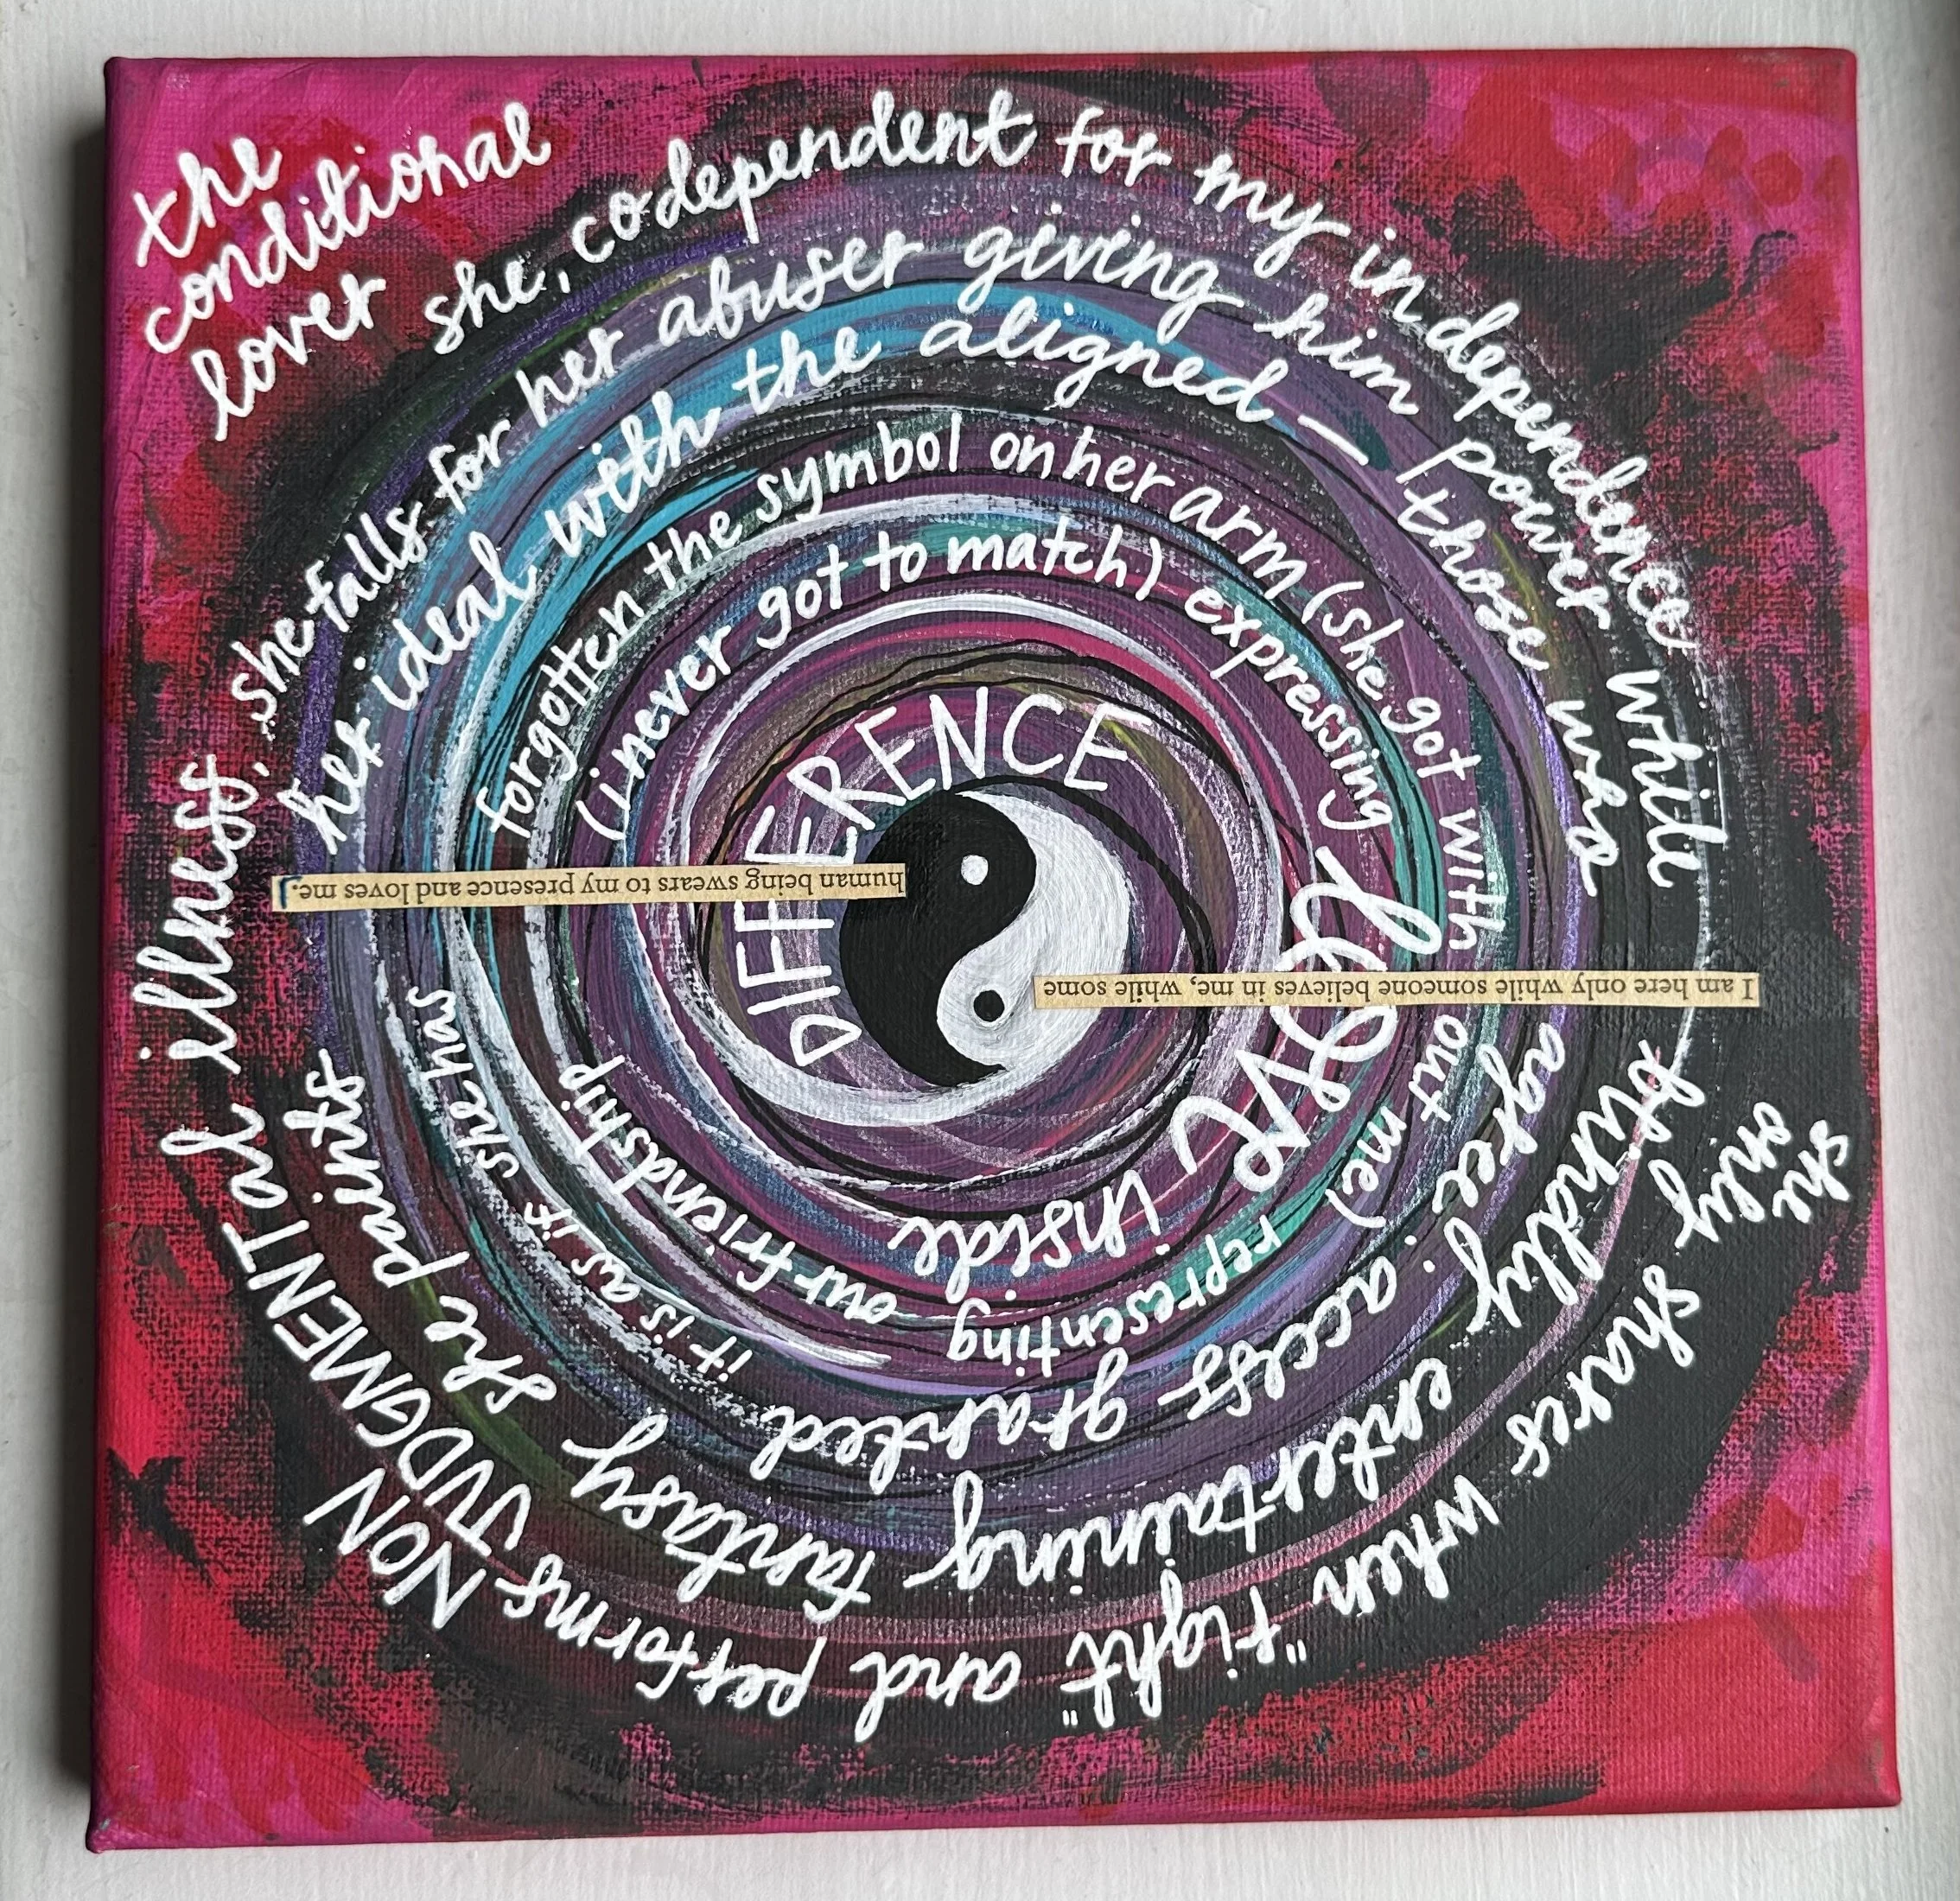 the
conditional
lover
she, codependent for my independence
she
only
shares when "right" and performs NON
JUDGMENTal illness, she falls for her abuser giving him power while
blindly entertaining fantasy she paints
her ideal with the aligned — those who
agree: access granted
it is as if she has
forgotten the symbol on her arm (she got with out me)
representing our friendship
(i never got to match) expressing
LOVE inside
DIFFERENCE
I am here only while someone believes in me, while some
human being swears to my presence and loves me.